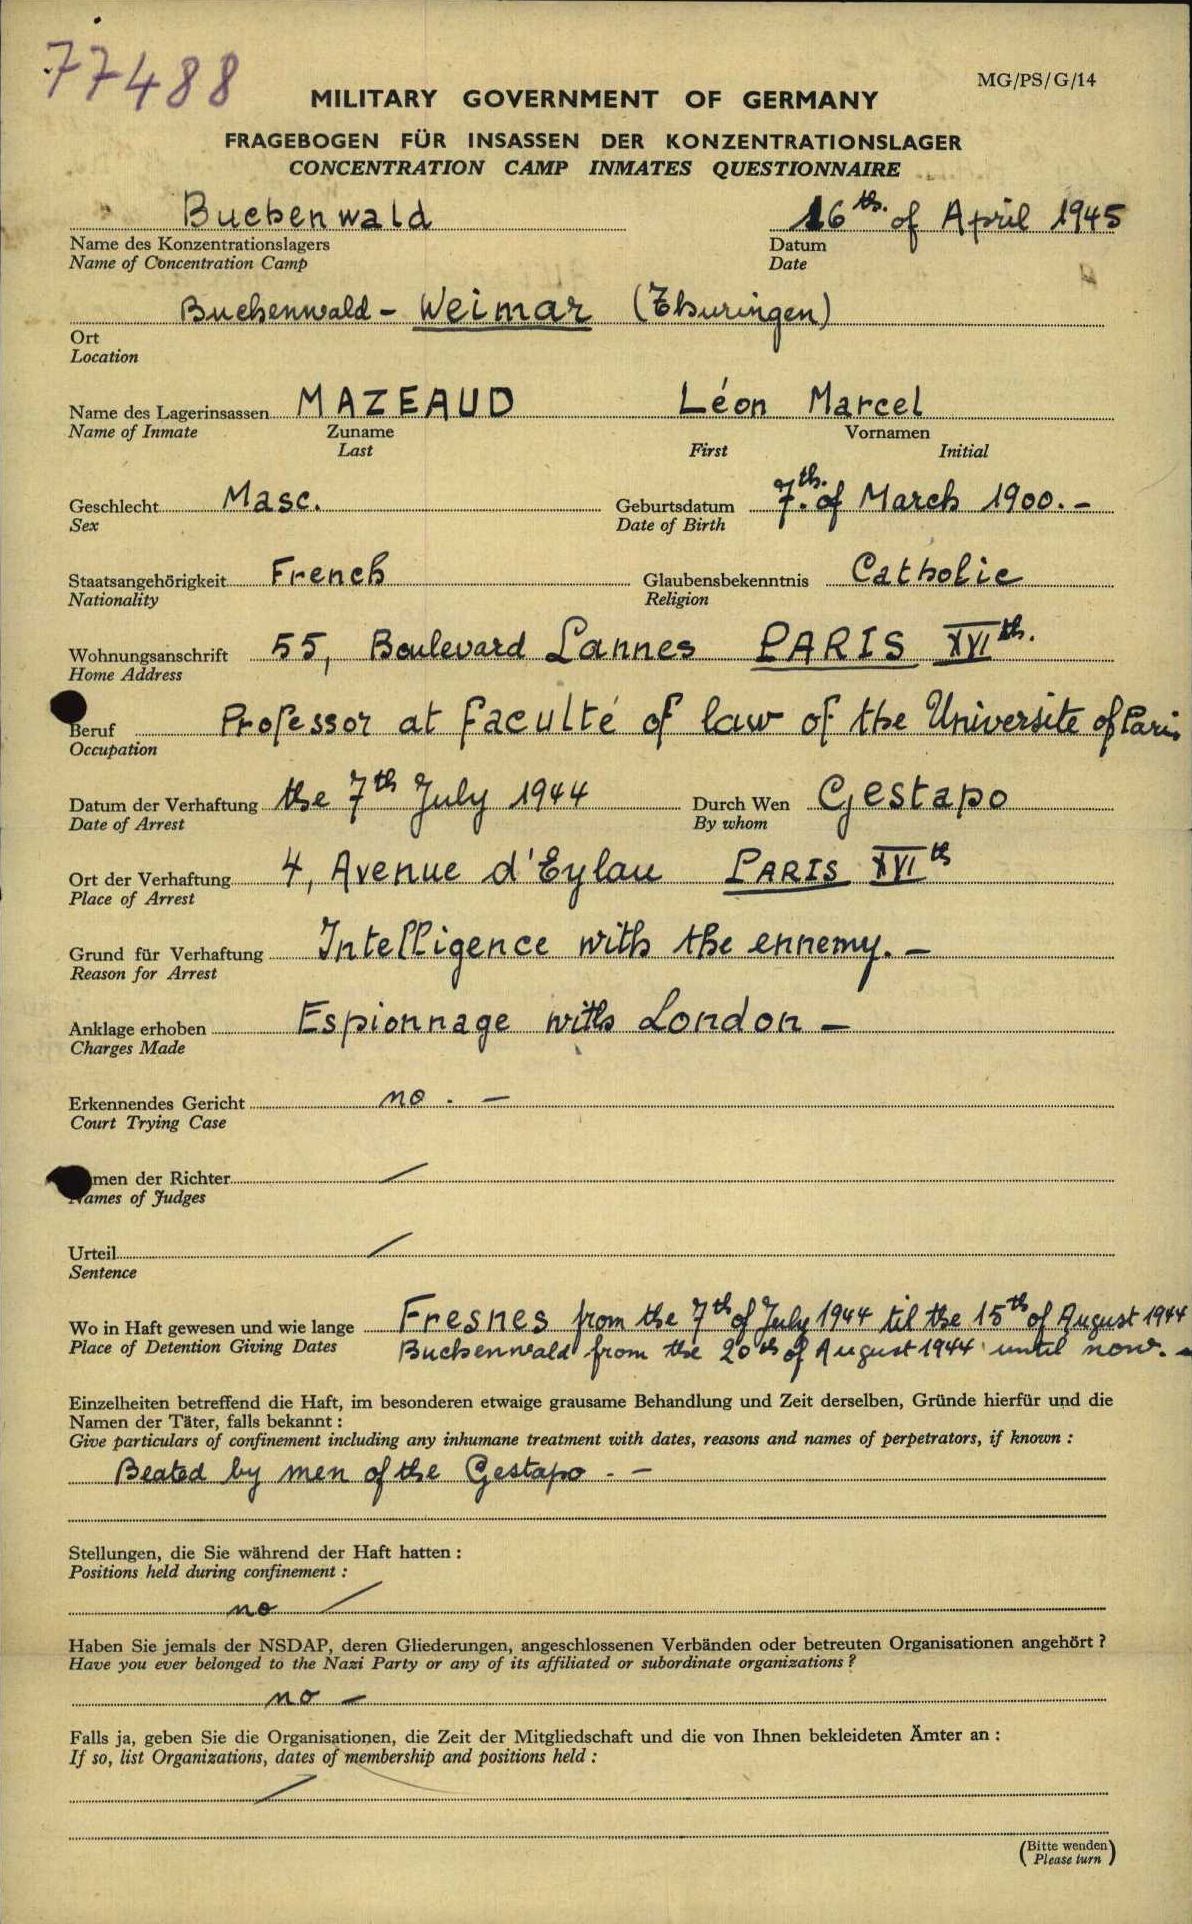 77488
MG/PS/G/14
MILITARY GOVERNMENT OF GERMANY
FRAGEBOGEN FÜR INSASSEN DER KONZENTRATIONSLAGER
CONCENTRATION CAMP INMATES QUESTIONNAIRE
Buchenwald 16th. of April 1945
Name des Konzentrationslagers Datum
Name of Concentration Camp Date
Buchenwald - Weimar (Thuringen)
Ort
Location
Name des Lagerinsassen MAZEAUD Léon Marcel
Name of Inmate Zuname Vornamen
Last First Initial
Geschlecht Masc. Geburtsdatum 7th. of March 1900. -
Sex Date of Birth
Staatsangehörigkeit French Glaubensbekenntnis Catholic
Nationality Religion
Wohnungsanschrift 55, Boulevard Lannes PARIS XVIth.
Home Address
Beruf Professor at faculté of law of the Université of Paris
Occupation
Datum der Verhaftung the 7th July 1944 Durch Wen Gestapo
Date of Arrest By whom
Ort der Verhaftung 4, Avenue d'Eylau PARIS XVIth
Place of Arrest
Grund für Verhaftung Intelligence with the ennemy. -
Reason for Arrest
Anklage erhoben Espionnage with London -
Charges Made
Erkennendes Gericht no . -
Court Trying Case
Namen der Richter /
Names of Judges
Urteil /
Sentence
Wo in Haft gewesen und wie lange Fresnes from the 7th of July 1944 til the 15th of August 1944
Place of Detention Giving Dates Buchenwald from the 20th of August 1944 until now. -
Einzelheiten betreffend die Haft, im besonderen etwaige grausame Behandlung und Zeit derselben, Gründe hierfür und die
Namen der Täter, falls bekannt :
Give particulars of confinement including any inhumane treatment with dates, reasons and names of perpetrators, if known :
Beated by men of the Gestapo . -
Stellungen, die Sie während der Haft hatten :
Positions held during confinement :
no /
Haben Sie jemals der NSDAP, deren Gliederungen, angeschlossenen Verbänden oder betreuten Organisationen angehört ?
Have you ever belonged to the Nazi Party or any of its affiliated or subordinate organizations ?
no -
Falls ja, geben Sie die Organisationen, die Zeit der Mitgliedschaft und die von Ihnen bekleideten Ämter an :
If so, list Organizations, dates of membership and positions held :
/
(Bitte wenden
Please turn)